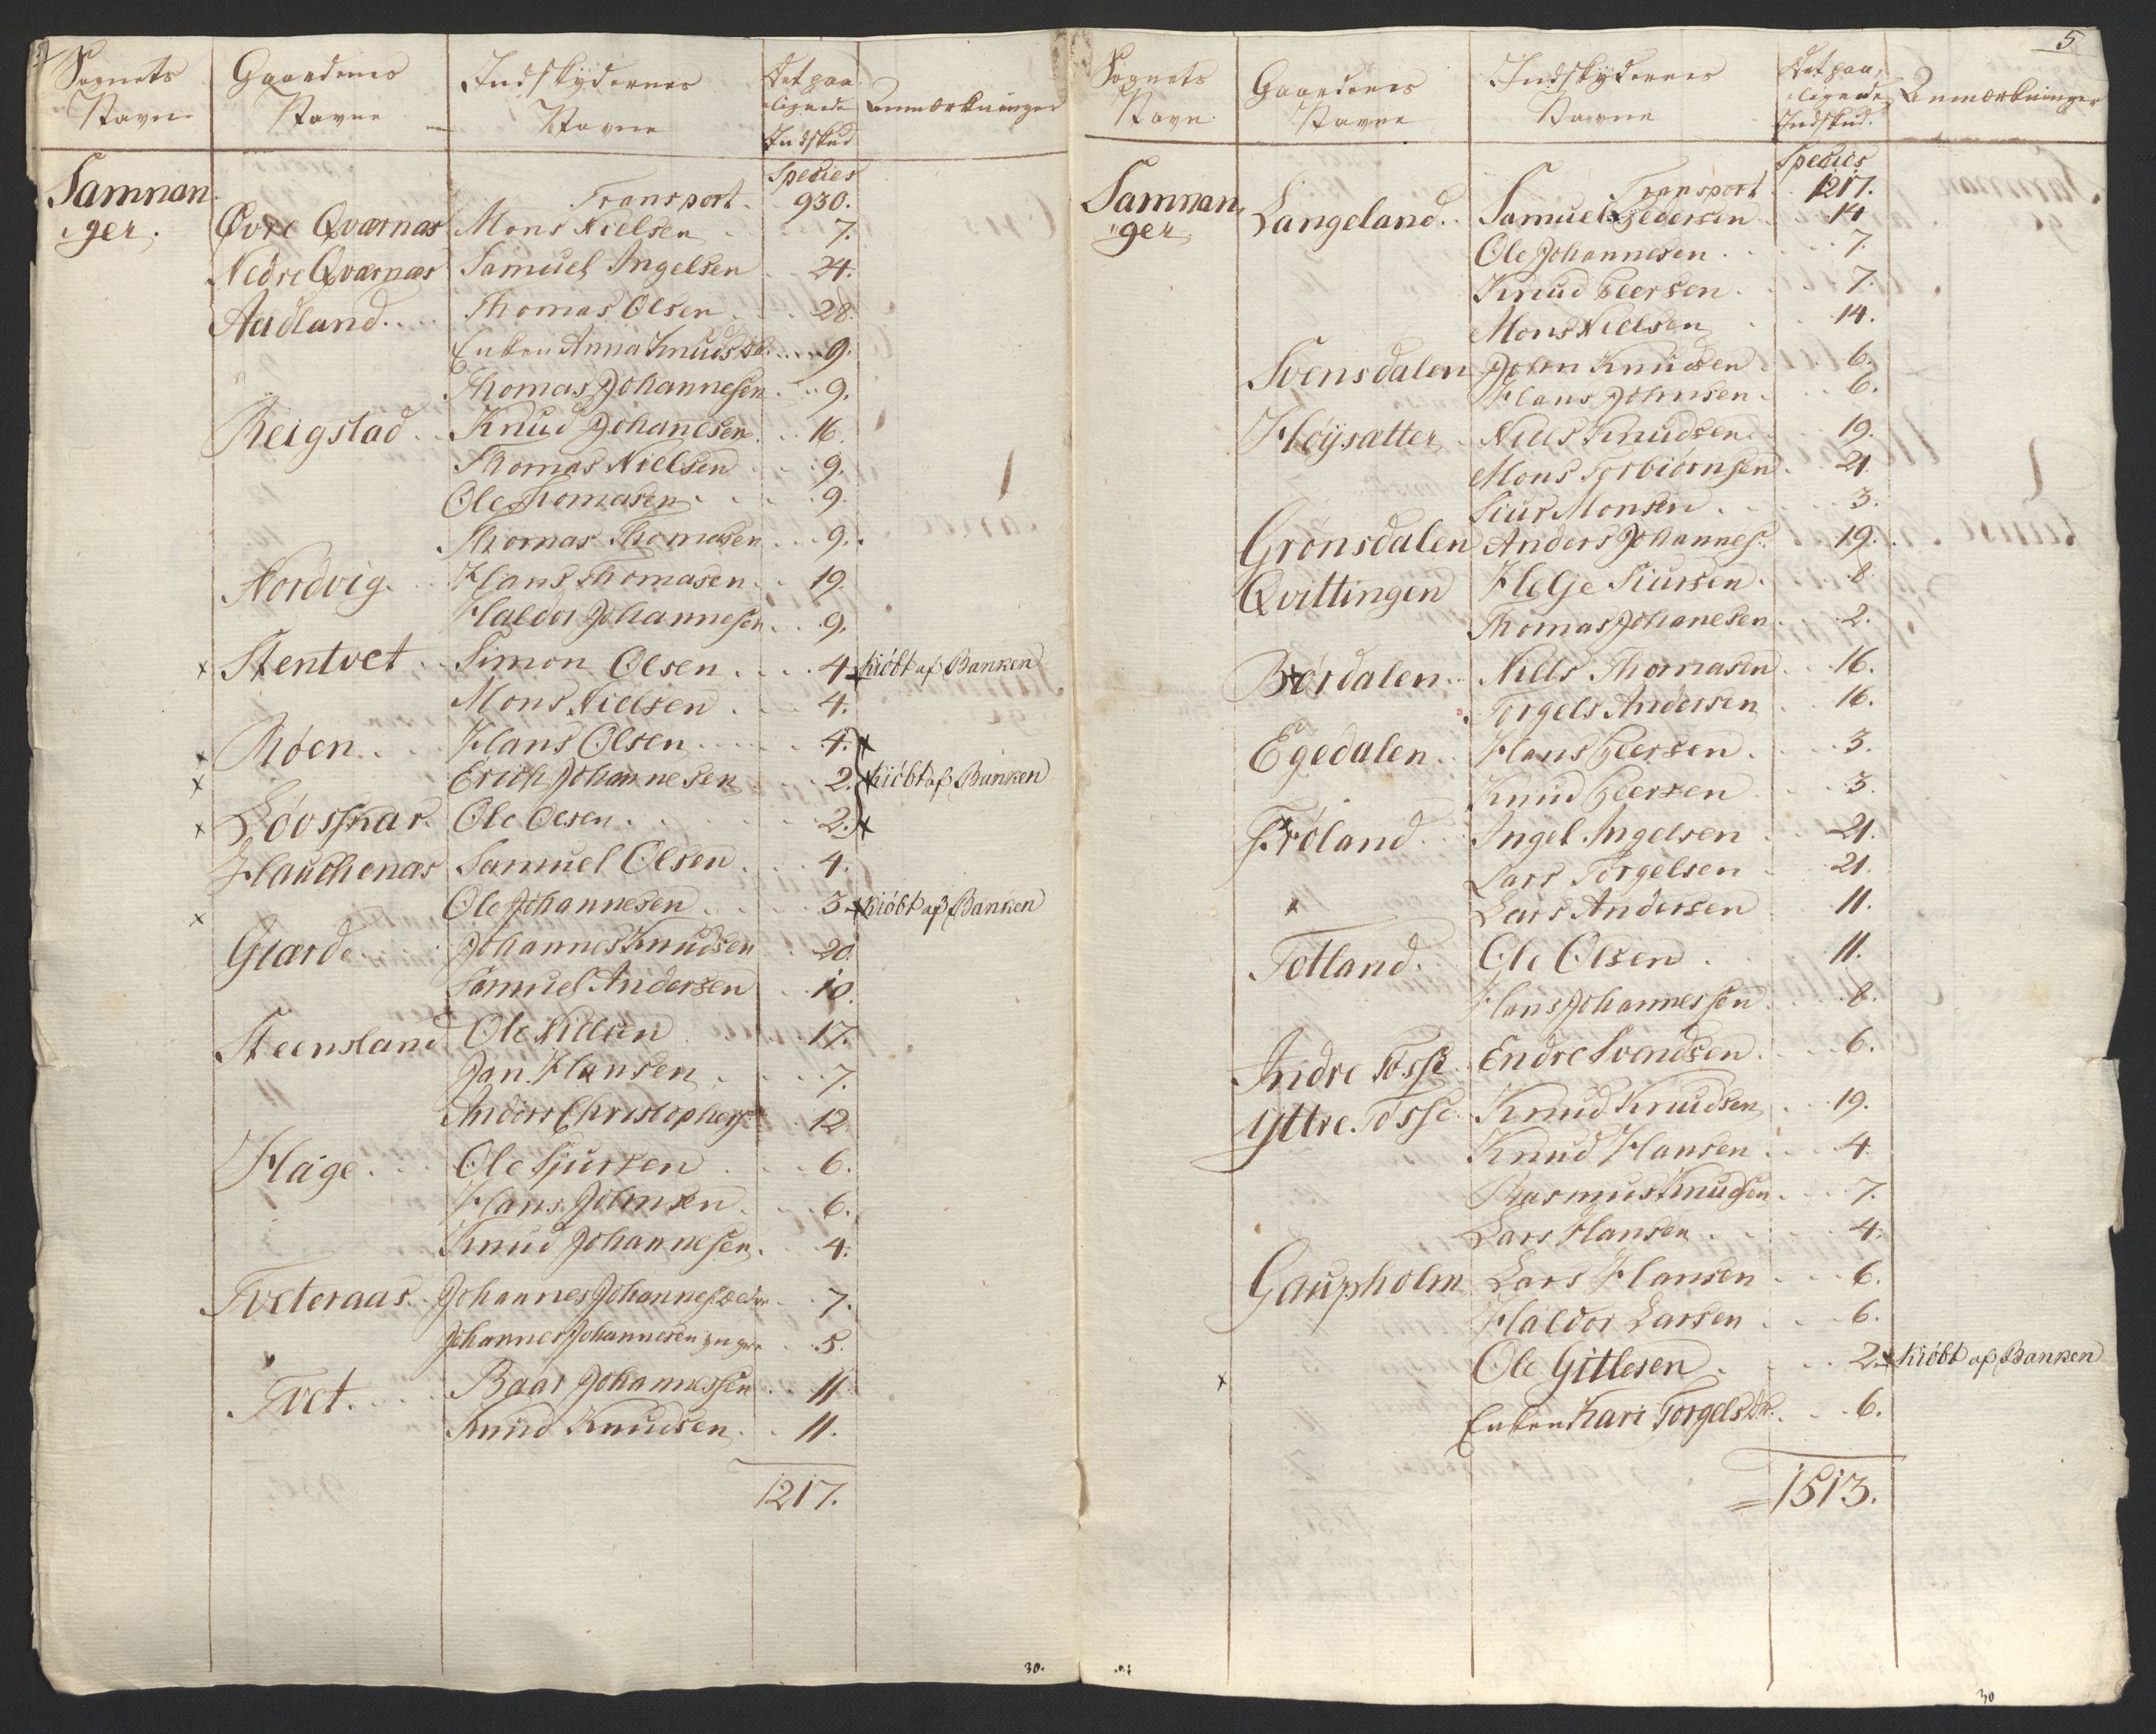 Sognets Navn | Gaardenes Navne | Indskydernes Navne | Det paalignede Indskud | Anmærkninger
Species
Samnanger. Transport. 930.
Øvre Qværnæs Mons Nielsen 7.
Nedre Qværnæs Samuel Ingelsen 24.
Aadland Thomas Olsen 28.
Enken Anna Knudsdr. 9.
Thomas Johannesen 9.
Reigstad Knud Johanesen 16.
Thomas Nielsen 9.
Ole Thomasen 9.
Thomas Thomasen 9.
Nordvig Hans Thomasen 19.
Haldor Johannesen 9.
x Stentvet Simon Olsen 4. x kiöbt af Banken
Mons Nielsen 4.
x Röen Hans Olsen 4. x
x Erich Johannesen 2. x kiöbt af Banken
x Lövskar Ole Olsen 2. x
Hauchenæs Samuel Olsen 4.
x Ole Johannesen 3. x kiöbt af Banken
Giærde Johannes Knudsen 20.
Samuel Andersen 10.
Steensland Ole Nielsen 17.
Jan Hansen 7.
Anders Christophers: 12
Hage Ole Sjursen 6.
Hans Johnsen 6.
Knud Johannesen 4.
Tveteraas Johannes Johannes: ældre 7.
Johannes Johannesen yngre 5.
Tvet Baar Johannessen 11.
Knud Knudsen 11.
1217.
30.
5
Sognets Navn. | Gaardenes Navne | Indskydernes Navne | Det paalignede Indskud. | Anmærkninger
Species
Samnanger Transport 1217.
Langeland Samuel Pedersen 14
Ole Johannesen 7.
Knud Peersen 7.
Mons Nielsen 14.
Svensdalen John Knudsen 6.
Hans Johnsen 6.
Flöysætter Niels Knudsen 19.
Mons Torbiörnsen 21.
Siur Monsen 3.
Grönsdalen Anders Johannes: 19.
Qvittingen Helje Siursen 8
Thomas Johanesen 2.
Bördalen Niels Thomasen 16.
Torgels Andersen 16.
Egedalen Hans Peersen 3.
Knud Peersen 3.
Fröland Ingel Ingelsen 21.
Lars Torgelsen 21.
x Lars Andersen 11.
Totland Ole Olsen 11.
Hans Johannessen 8.
Indre Tösse Endre Svendsen 6.
Yttre Tösse Knud Knudsen 19.
Knud Hansen 4.
Rasmus Knudsen 7.
Lars Hansen 4.
Gaupholm Lars Hansen 6.
Haldor Larsen 6.
x Ole Gitlesen 2. x kiöbt af Banken
Enken Kari Torgelsdr. 6.
1513.
30